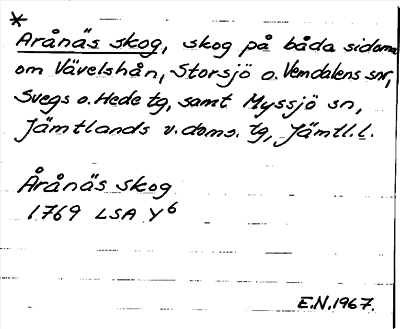 *
Arånäs skog, skog på båda sidorna
om Vävelshån, Storsjö o. Vemdalens snr,
Svegs o. Hede tg, samt Myssjö sn,
Jämtlands v. doms. tg, Jämtl. l.
Årånäs skog
1769 LSA Y6
E.N. 1967.